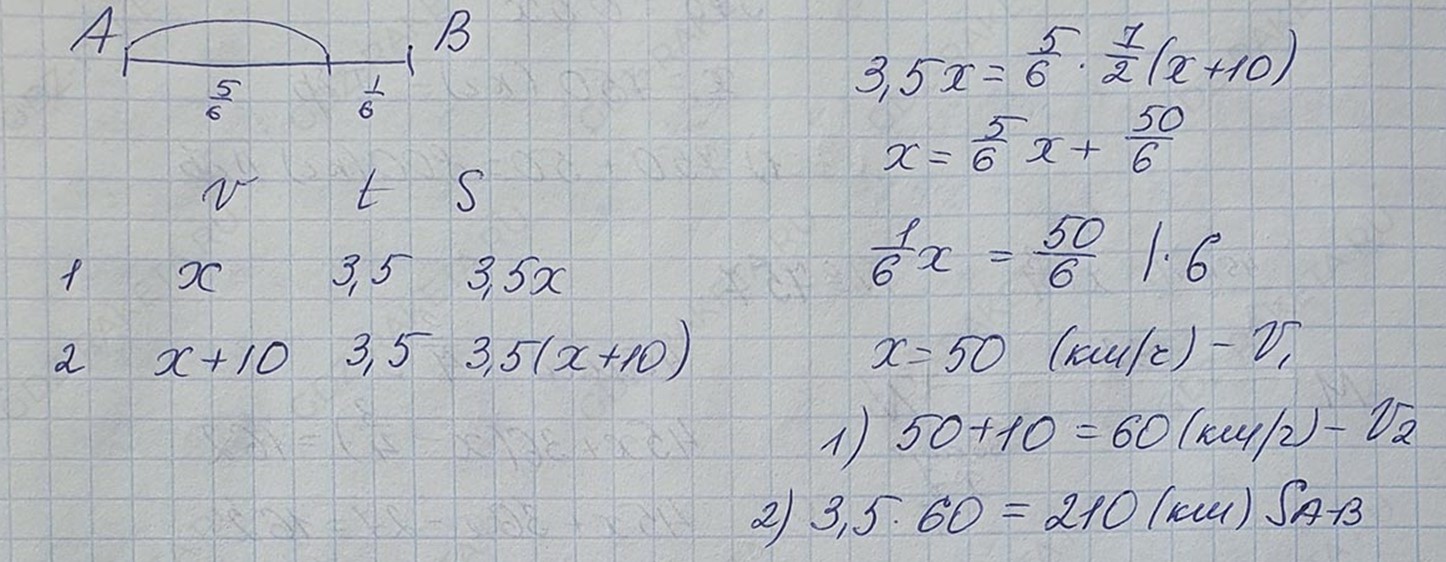 A B
5/6 1/6
v t S
1 x 3,5 3,5x
2 x+10 3,5 3,5(x+10)
3,5x = 5/6 · 7/2 (x+10)
x = 5/6 x + 50/6
1/6 x = 50/6 |·6
x = 50 (км/ч) - V₁
1) 50+10 = 60 (км/ч) - V₂
2) 3,5 · 60 = 210 (км) SA-B